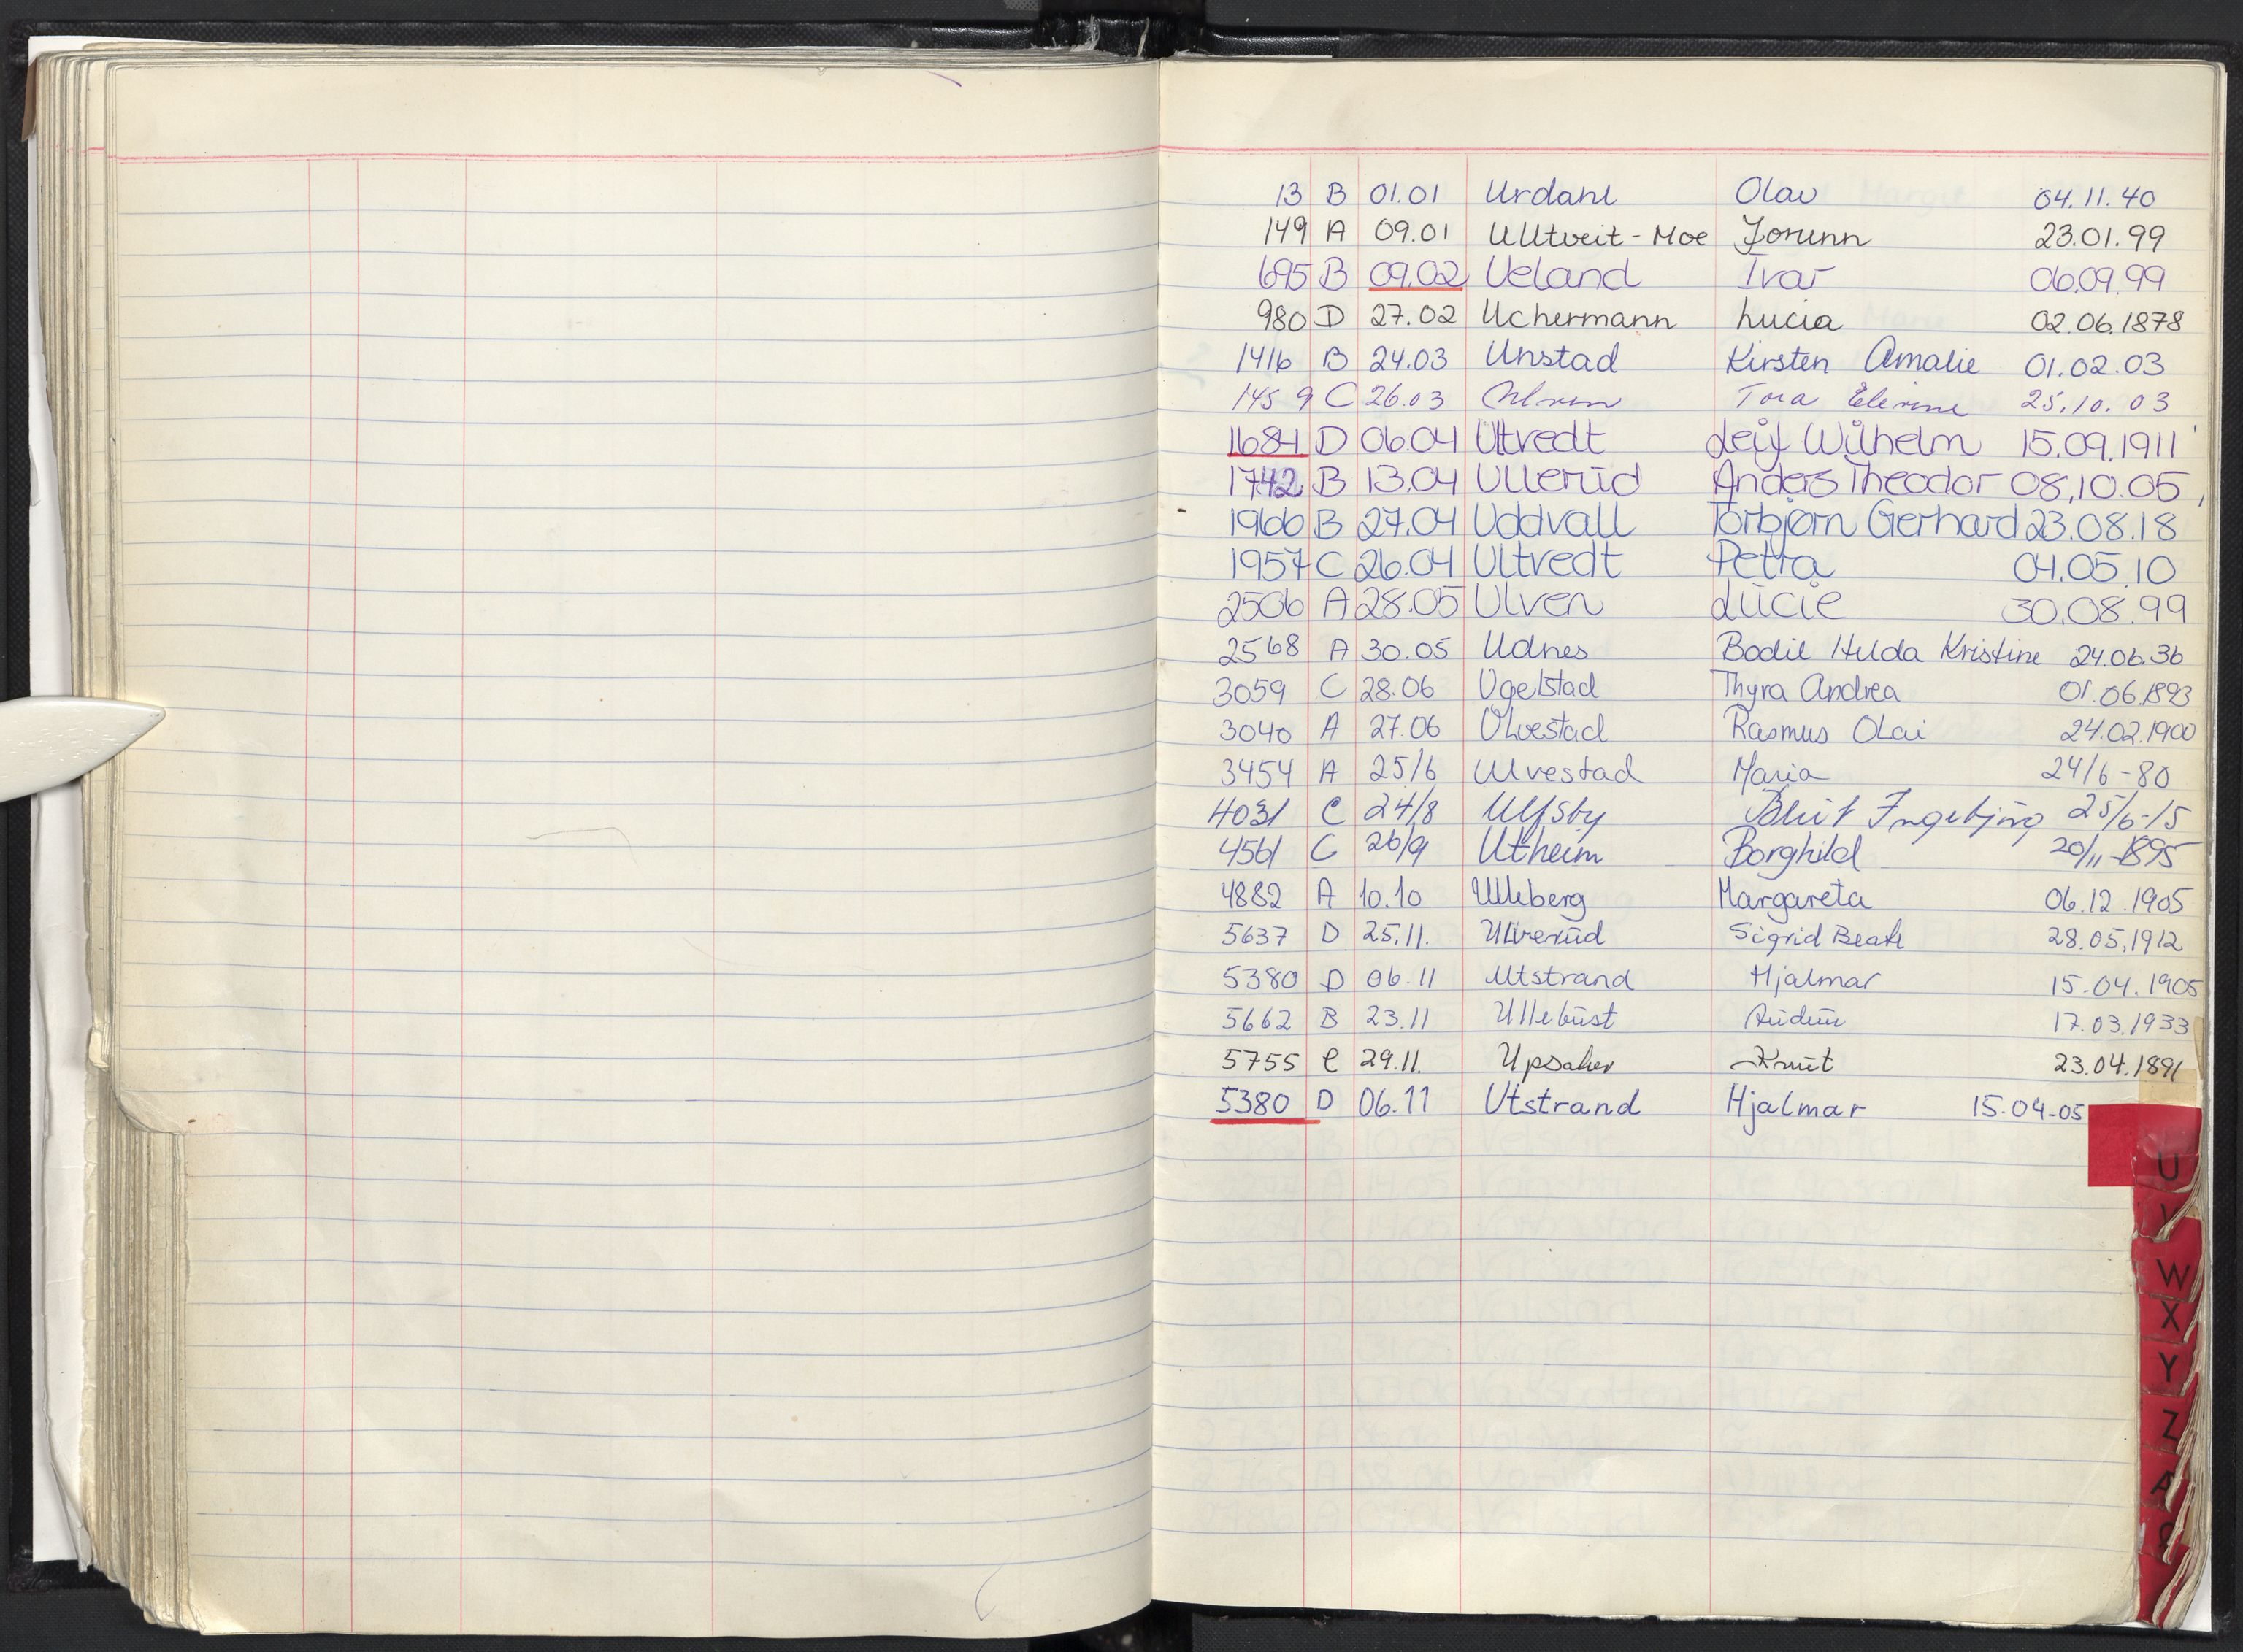 13 B 01.01 Urdahl Olav 04.11.40
149 A 09.01 Ulltveit-Moe Jorunn 23.01.99
695 B 09.02 Ueland Ivar 06.09.99
980 D 27.02 Uchermann Lucia 02.06.1878
1416 B 24.03 Unstad Kirsten Amalie 01.02.03
1459 C 26.03 Tora 25.10.03
1684 D 06.04 Ultvedt Leif Wilhelm 15.09.1911
1742 B 13.04 Ullerud Anders Theodor 08.10.05
1966 B 27.04 Uddvall Torbjørn Gerhard 23.08.18
1957 C 26.04 Ultvedt Petra 04.05.10
2506 A 28.05 Ulven Lucie 30.08.99
2568 A 30.05 Udnes Bodil Hilda Kristine 24.06.36
3059 C 28.06 Ugelstad Thyra Andrea 01.06.1893
3040 A 27.06 Ulvestad Rasmus Olai 24.02.1900
3454 A 25/6 Ulvestad Maria 24/6-80
4031 C 24/8 Ulfsby 25/6-15
4561 C 26/9 Utheim Borghild 20/11-1895
4882 A 10.10 Ulleberg Margareta 06.12.1905
5637 D 25.11. Sigrid Beate 28.05.1912
5380 D 06.11 Utstrand Hjalmar 15.04.1905
5662 B 23.11 Ullebust Audun 17.03.1933
5755 C 29.11. Upsaker Knut 23.04.1891
5380 D 06.11 Utstrand Hjalmar 15.04-05
U
V
W
X
Y
Z